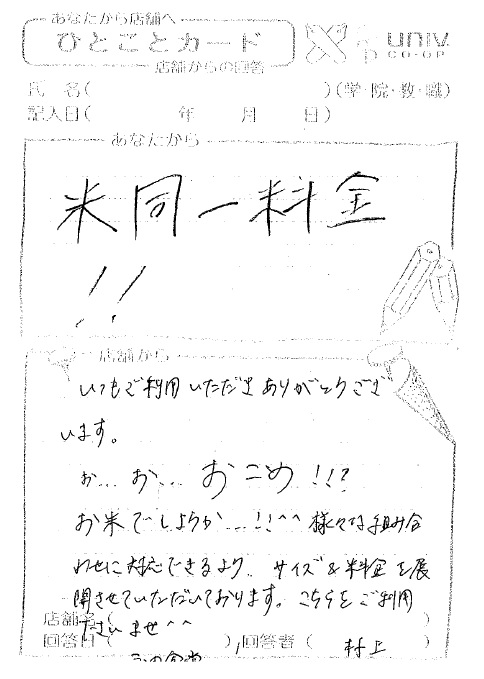 あなたから店舗へ
ひとことカード
店舗からの回答
univ.
CO-OP
氏 名( )(学・院・教・職)
記入日( 年 月 日)
あなたから
米同一料金
!!
店舗から
いつもご利用いただきありがとうござ
います。
お… お… おこめ!!?
お米でしょうか…!!^^ 様々な組み合
わせに対応できるよう、サイズ&料金を展
開させていただいております。こちらをご利用
くださいませ^^
店舗名( )
回答日( ),回答者( 村上